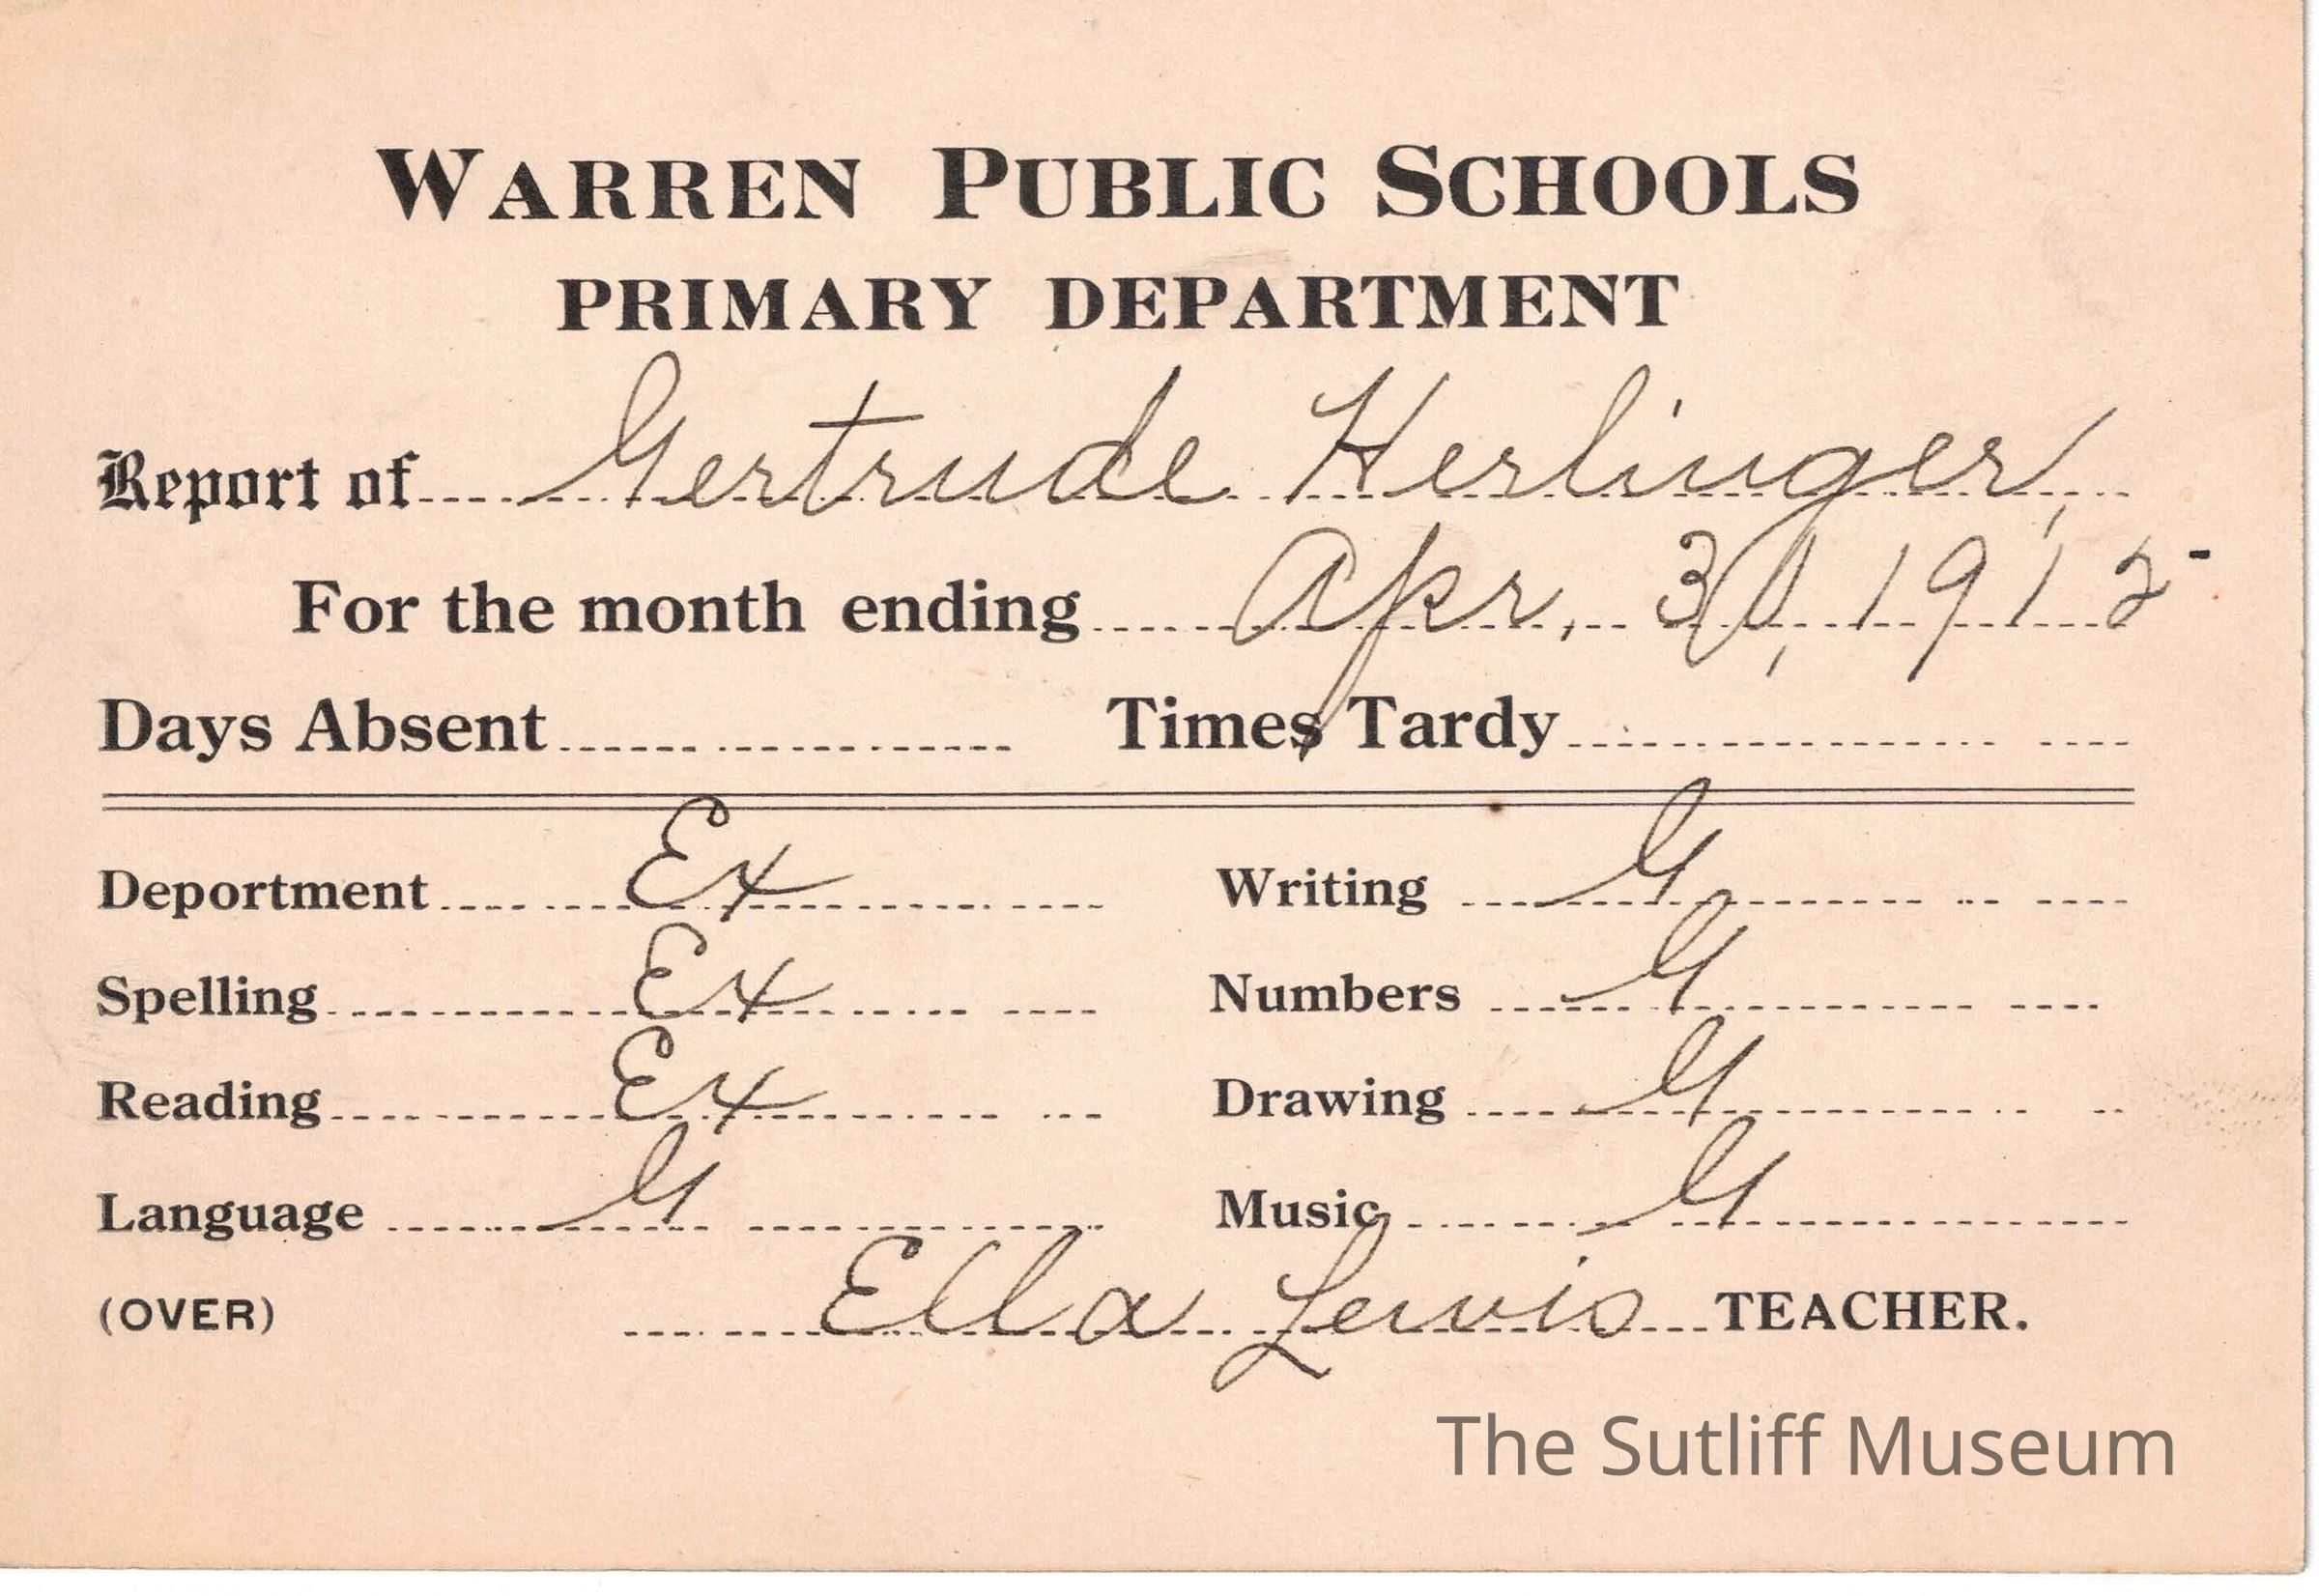 WARREN PUBLIC SCHOOLS
PRIMARY DEPARTMENT
Report of Gertrude Herlinger,
For the month ending Apr. 30, 1912-
Days Absent Times Tardy
Deportment Ex Writing G
Spelling Ex Numbers G
Reading Ex Drawing G
Language G Music G
(OVER) Ella Lewis TEACHER.
The Sutliff Museum